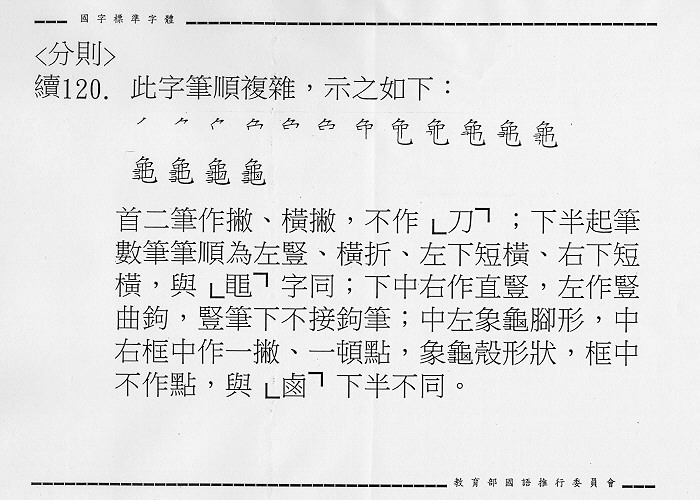 國字標準字體
<分則>
續120. 此字筆順複雜，示之如下：
首二筆作撇、橫撇，不作「刀」；下半起筆
數筆筆順為左豎、橫折、左下短橫、右下短
橫，與「黽」字同；下中右作直豎，左作豎
曲鉤，豎筆下不接鉤筆；中左象龜腳形，中
右框中作一撇、一頓點，象龜殼形狀，框中
不作點，與「鹵」下半不同。
教育部國語推行委員會